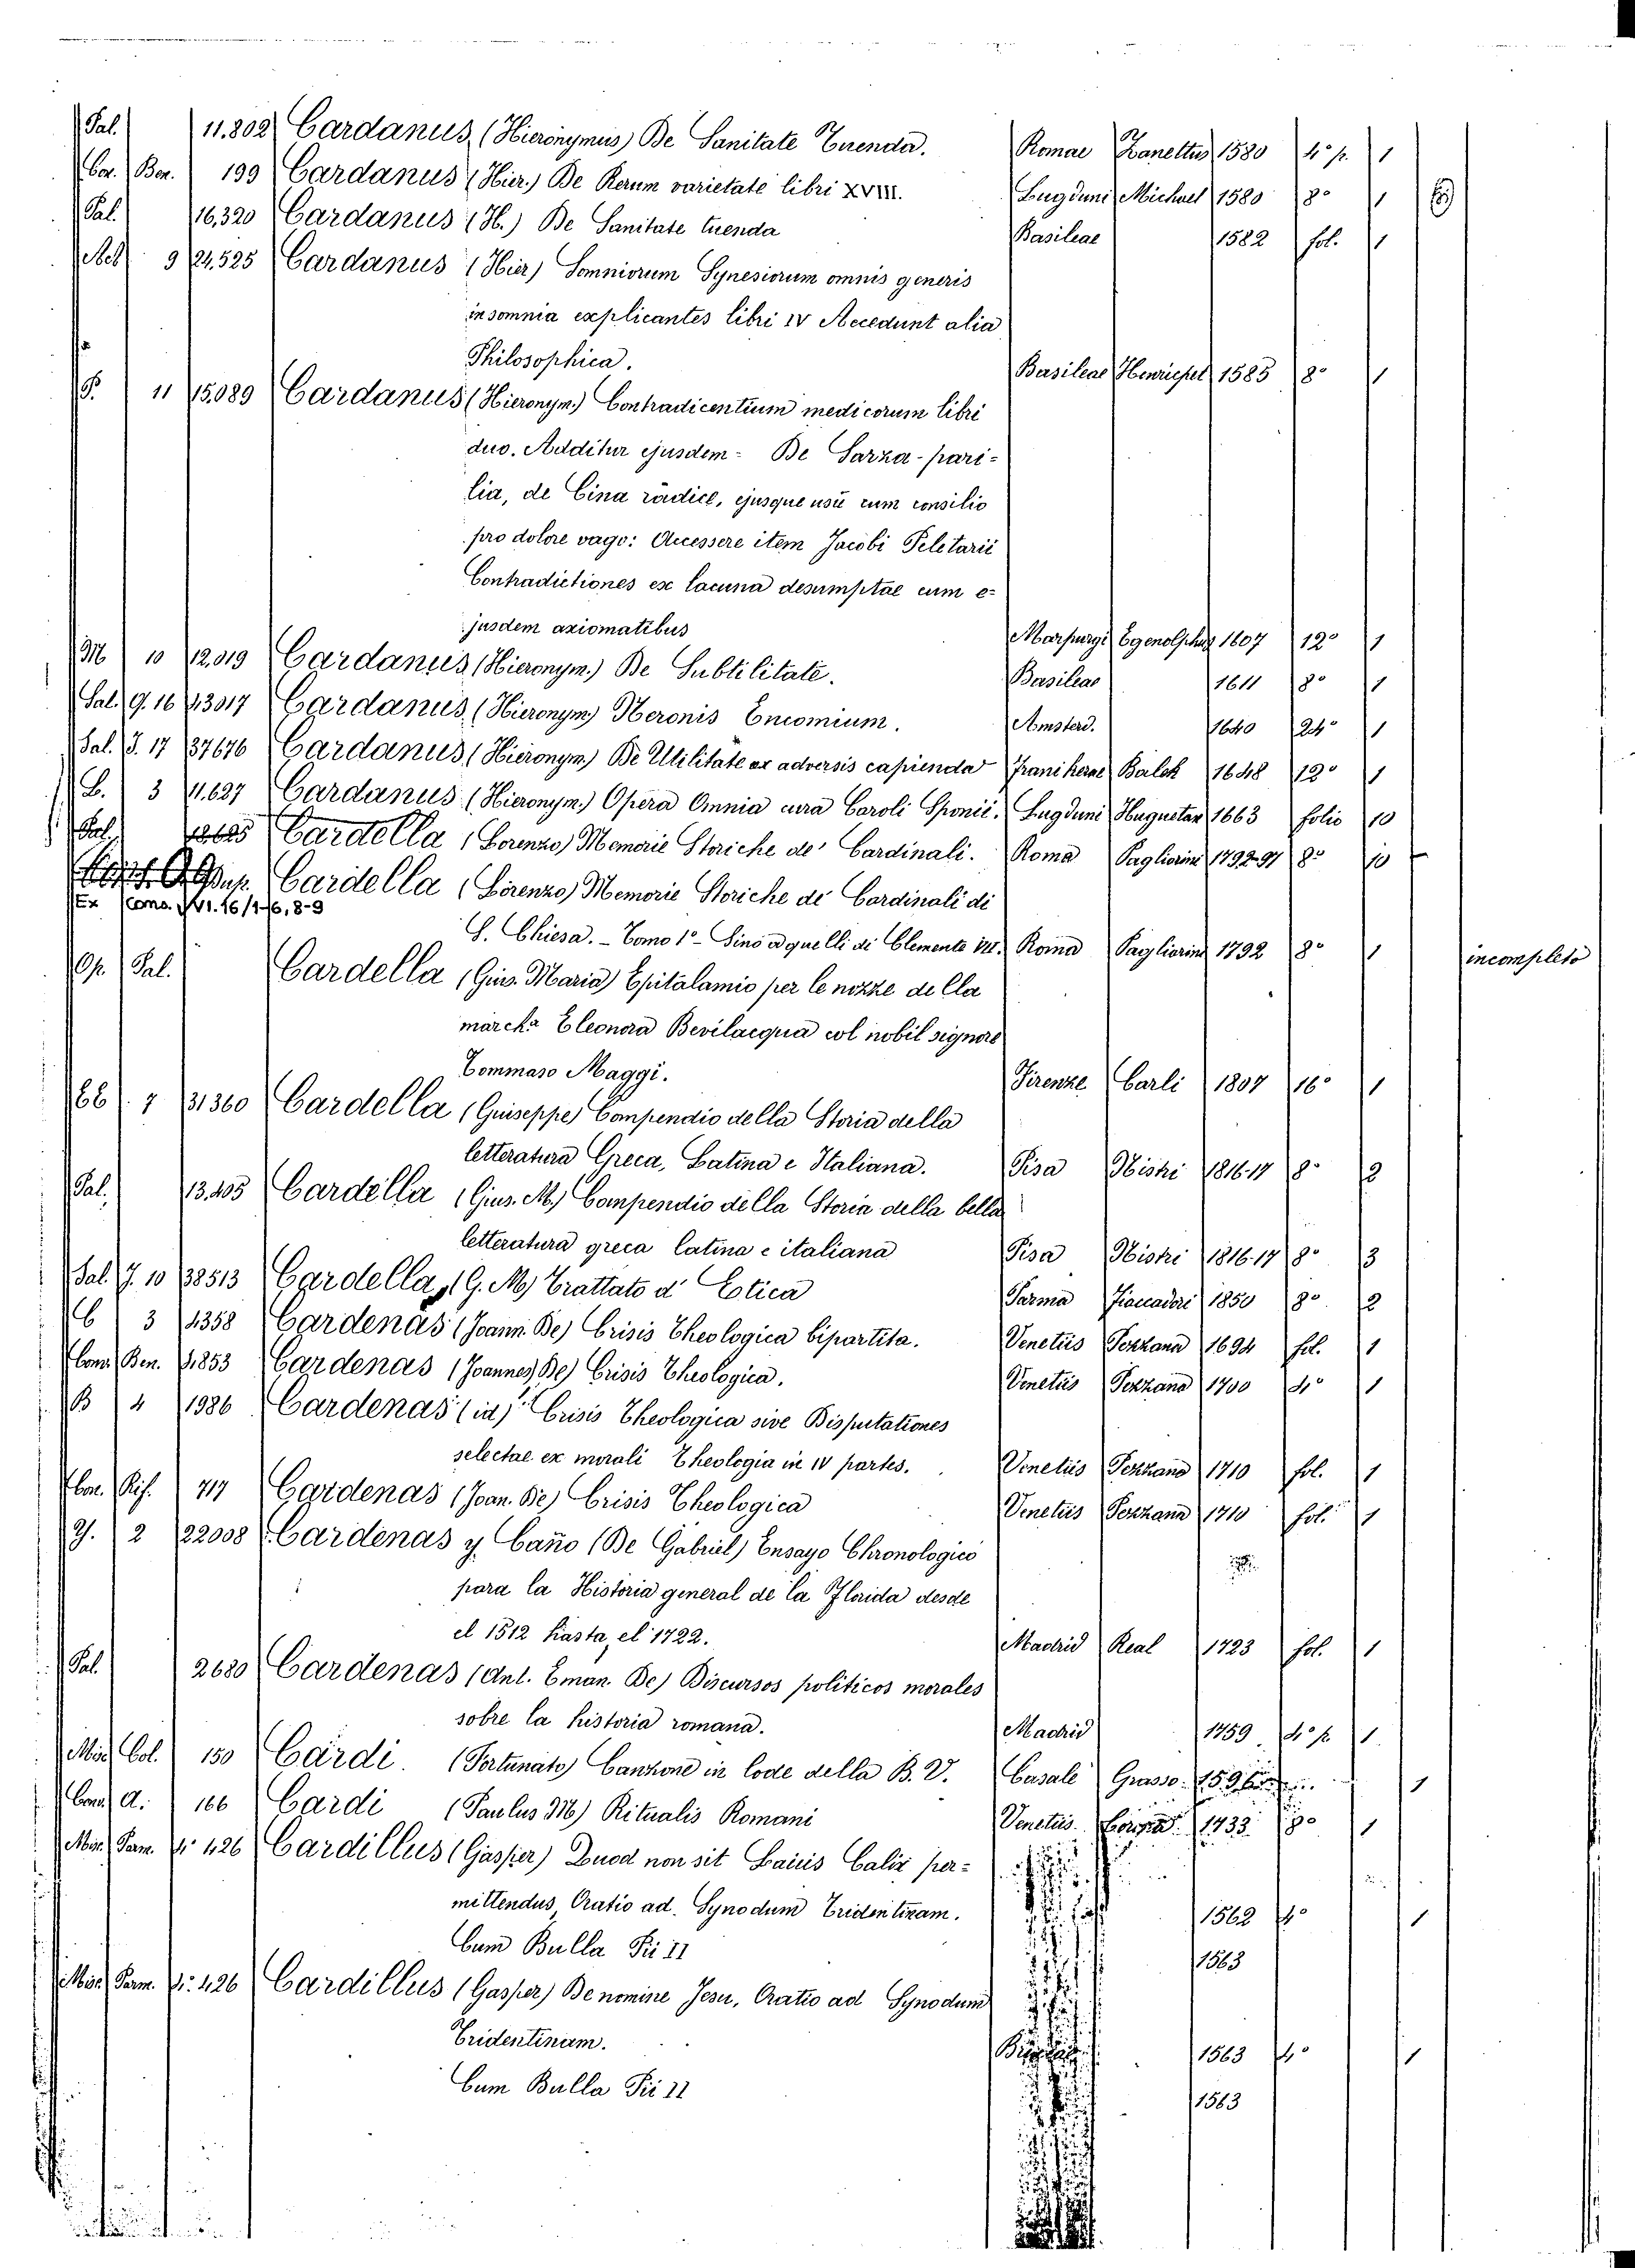 Pal. 11.802 Cardanus, (Hieronymus) De Sanitate Tuenda. Romae Zanettus 1580 4° p. 1
Cor. Ben. 199 Cardanus (Hier.) De Rerum varietate libri XVIII. Lugduni Michael 1580 8° 1
Pal. 16,320 Cardanus (H.) De Sanitate tuenda Basileae 1582 fol. 1
9 21,525 Cardanus (Hier) Somniorum Synesiorum omnis generis
insomnia explicantes libri IV Accedunt alia
Philosophica. Basileae Henricpet 1585 8° 1
P. 11 15,089 Cardanus (Hieronym.) Contradicentium medicorum libri
duo. Additur ejusdem - De Sarza-pari=
lia, de Cina radice, ejusque usu cum consilio
pro dolore vago: Accessere item Jacobi Peletarii
Contradictiones ex lacuna desumptae cum e=
jusdem axiomatibus Marpurgi Egenolphus 1607 12° 1
M 10 12,019 Cardanus, (Hieronym.) De Subtilitate. Basileae 1611 8° 1
Sal. G. 16 43017 Cardanus, (Hieronym) Neronis Encomium. Amsterd. 1640 24° 1
Sal. J. 17 37676 Cardanus, (Hieronym) De Utilitate ex adversis capienda Franikerae Balck 1648 12° 1
L. 3 11.627 Cardanus (Hieronym.) Opera Omnia cura Caroli Sponii. Lugduni Huguetan 1663 folio 10
Pal. Cardella (Lorenzo) Memorie Storiche de' Cardinali. Roma Pagliarini 1792-97 8° 10
Dup. Cardella (Lorenzo) Memorie Storiche de Cardinali di
Ex Cons. VVI. 16/1-6, 8-9
S. Chiesa. - Tomo 1° - Sino a quelli di Clemente III. Roma Pagliarini 1792 8° 1 incompleto
Op. Pal. Cardella (Gius. Maria) Epitalamio per le nozze della
march.a Eleonora Bevilacqua col nobil signore
Tommaso Maggi. Firenze Carli 1807 16° 1
Cc 7 31360 Cardella (Guiseppe) Compendio della Storia della
letteratura Greca, Latina e Italiana. Pisa Nistri 1816-17 8° 2
Pal. 13,405 Cardella (Gius. M.) Compendio della Storia della bella
letteratura greca latina e italiana Pisa Nistri 1816-17 8° 3
Sal. J. 10 38513 Cardella, (G. M.) Trattato d' Estica Parma Fiaccadori 1850 8° 2
C 3 4358 Cardenas (Joann. De) Crisis Theologica bipartita. Venetiis Pezzana 1694 fol. 1
Cons. Ben. 1,853 Cardenas (Joannes, De) Crisis Theologica. Venetiis Pezzana 1700 4° 1
B 4 1986 Cardenas (id) Crisis Theologica sive Disputationes
selectae ex morali Theologia in IV partes. Venetiis Pezzana 1710 fol. 1
Con. Rif. 717 Cardenas (Joan. De) Crisis Theologica Venetiis Pezzana 1710 fol. 1
Y. 2 22008 Cardenas y Caño (De Gabriel) Ensayo Chronologico
para la Historia general de la Florida desde
el 1512 hasta el 1722. Madrid Real 1723 fol. 1
Pal. 2680 Cardenas (Ant. Eman. De) Discursos politicos morales
sobre la historia romana. Madrid 1759 4° p. 1
Misc. Col. 150 Cardi (Fortunato) Canzone in lode della B. V. Casale Grasso 1
Cons. A. 166 Cardi (Paulus M) Ritualis Romani Venetiis 1733 8° 1
Misc. Parm. 4° 426 Cardillus (Gasper) Quod non sit Laicis Calix per=
mittendus, Oratio ad Synodum Tridentinam. 1562 4° 1
Cum Bulla Pii II 1563
Misc. Parm. 4° 426 Cardillus (Gasper) De nomine Jesu, Oratio ad Synodum
Tridentinam. 1563 4° 1
Cum Bulla Pii II 1563